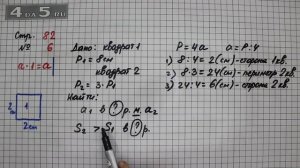 4АДЗ.РУ
Стр. 82
№ 6
a·1=a
1
2см
2см
Дано: квадрат 1
P₁ = 8см
квадрат 2
P₂ = 3·P₁
Найти:
a₁ в ? р. м. a₂
S₂ > S₁ в ? р.
P = 4a a = P:4
1) 8:4=2(см)-сторона 1кв.
2) 8·3=24(см)-периметр 2кв.
3) 24:4=6(см)-сторона 2кв.